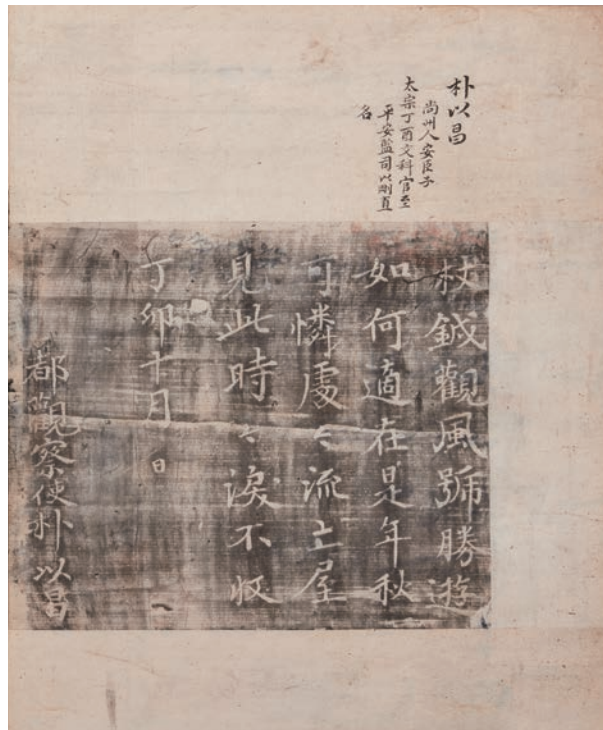 朴以昌
尙州人安臣子
太宗丁酉文科官至
平安監司以剛直
名
杖鉞觀風號勝遊
如何適在是年秋
可憐處々流亡屋
見此時々淚不收
丁卯十月 日
都觀察使朴以昌